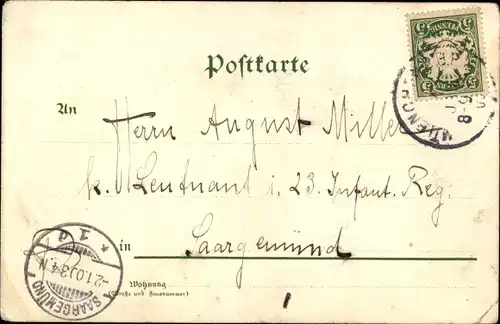 Postkarte
An
Herrn August Miller
k. Leutnant i. 23. Infant. Reg.
in Saargemünd
Wohnung
(Straße und Hausnummer)
SAARGEMÜND